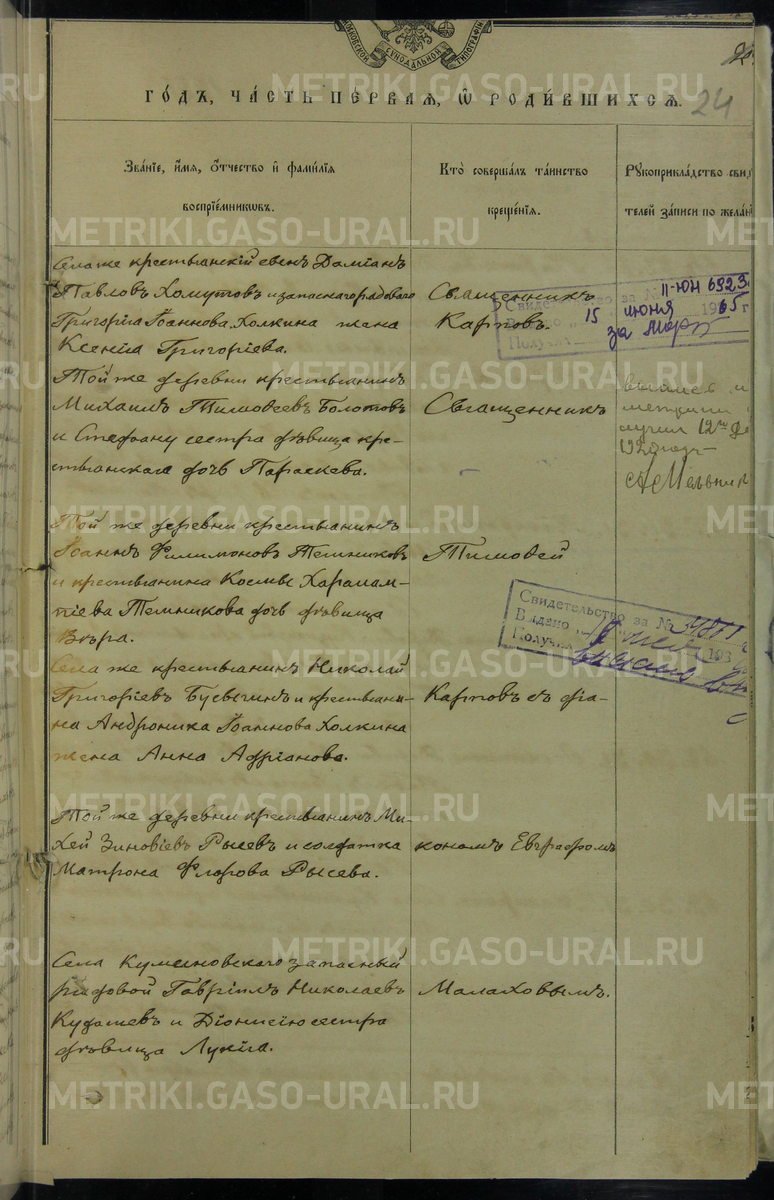 МОСКОВСКОЙ СѴНОДАЛЬНОЙ ТИПОГРАФІИ
24
ГО́ДЪ, ЧА́СТЬ ПЕ́РВАЯ, Ѡ҆ РОДИ́ВШИХСЯ.
Зва́нїе, и҆́мя, ѻ҆́тчество и҆ фами́лїѧ
воспрїе́мникωвъ.
Кто̀ соверша́лъ та́инство
креще́нїѧ.
Рꙋкоприкла́дство свид
телей за́писи по жела́н
Села же крестьянскій сынъ Даміанъ
Павловъ Хомутовъ и запаснаго рядоваго
Григорія Іоаннова Холкина жена
Ксенія Григоріева.
Священникъ
Карповъ.
Свидетельство за №
II-ЮН 692,3
15 июня 1965 г
Получ
Той же деревни крестьянинъ
Михаилъ Тимоѳеевъ Болотовъ
и Стефану сестра дѣвица кре-
стьянская дочь Параскева.
Священникъ
метрики
12го
Той же деревни крестьянинъ
Іоаннъ Филимоновъ Темниковъ
и крестьянина Космы Харалам-
піева Темникова дочь дѣвица
Вѣра.
Тимоѳей
Свидетельство за №
Выдано
Получ
193
Села же крестьянинъ Николай
Григоріевъ Бусыгинъ и крестьяни-
на Андроника Іоаннова Холкина
жена Анна Адріанова.
Карповъ съ діа-
Той же деревни крестьянинъ Ми-
хей Зиновіевъ Рысевъ и солдатка
Матрона Флорова Рысева.
кономъ Евграфомъ
Села запасный
рядовой Гавріилъ Николаевъ
Кудашевъ и Діонисію сестра
дѣвица Лукія.
Малаховымъ.
METRIKI.GASO-URAL.RU